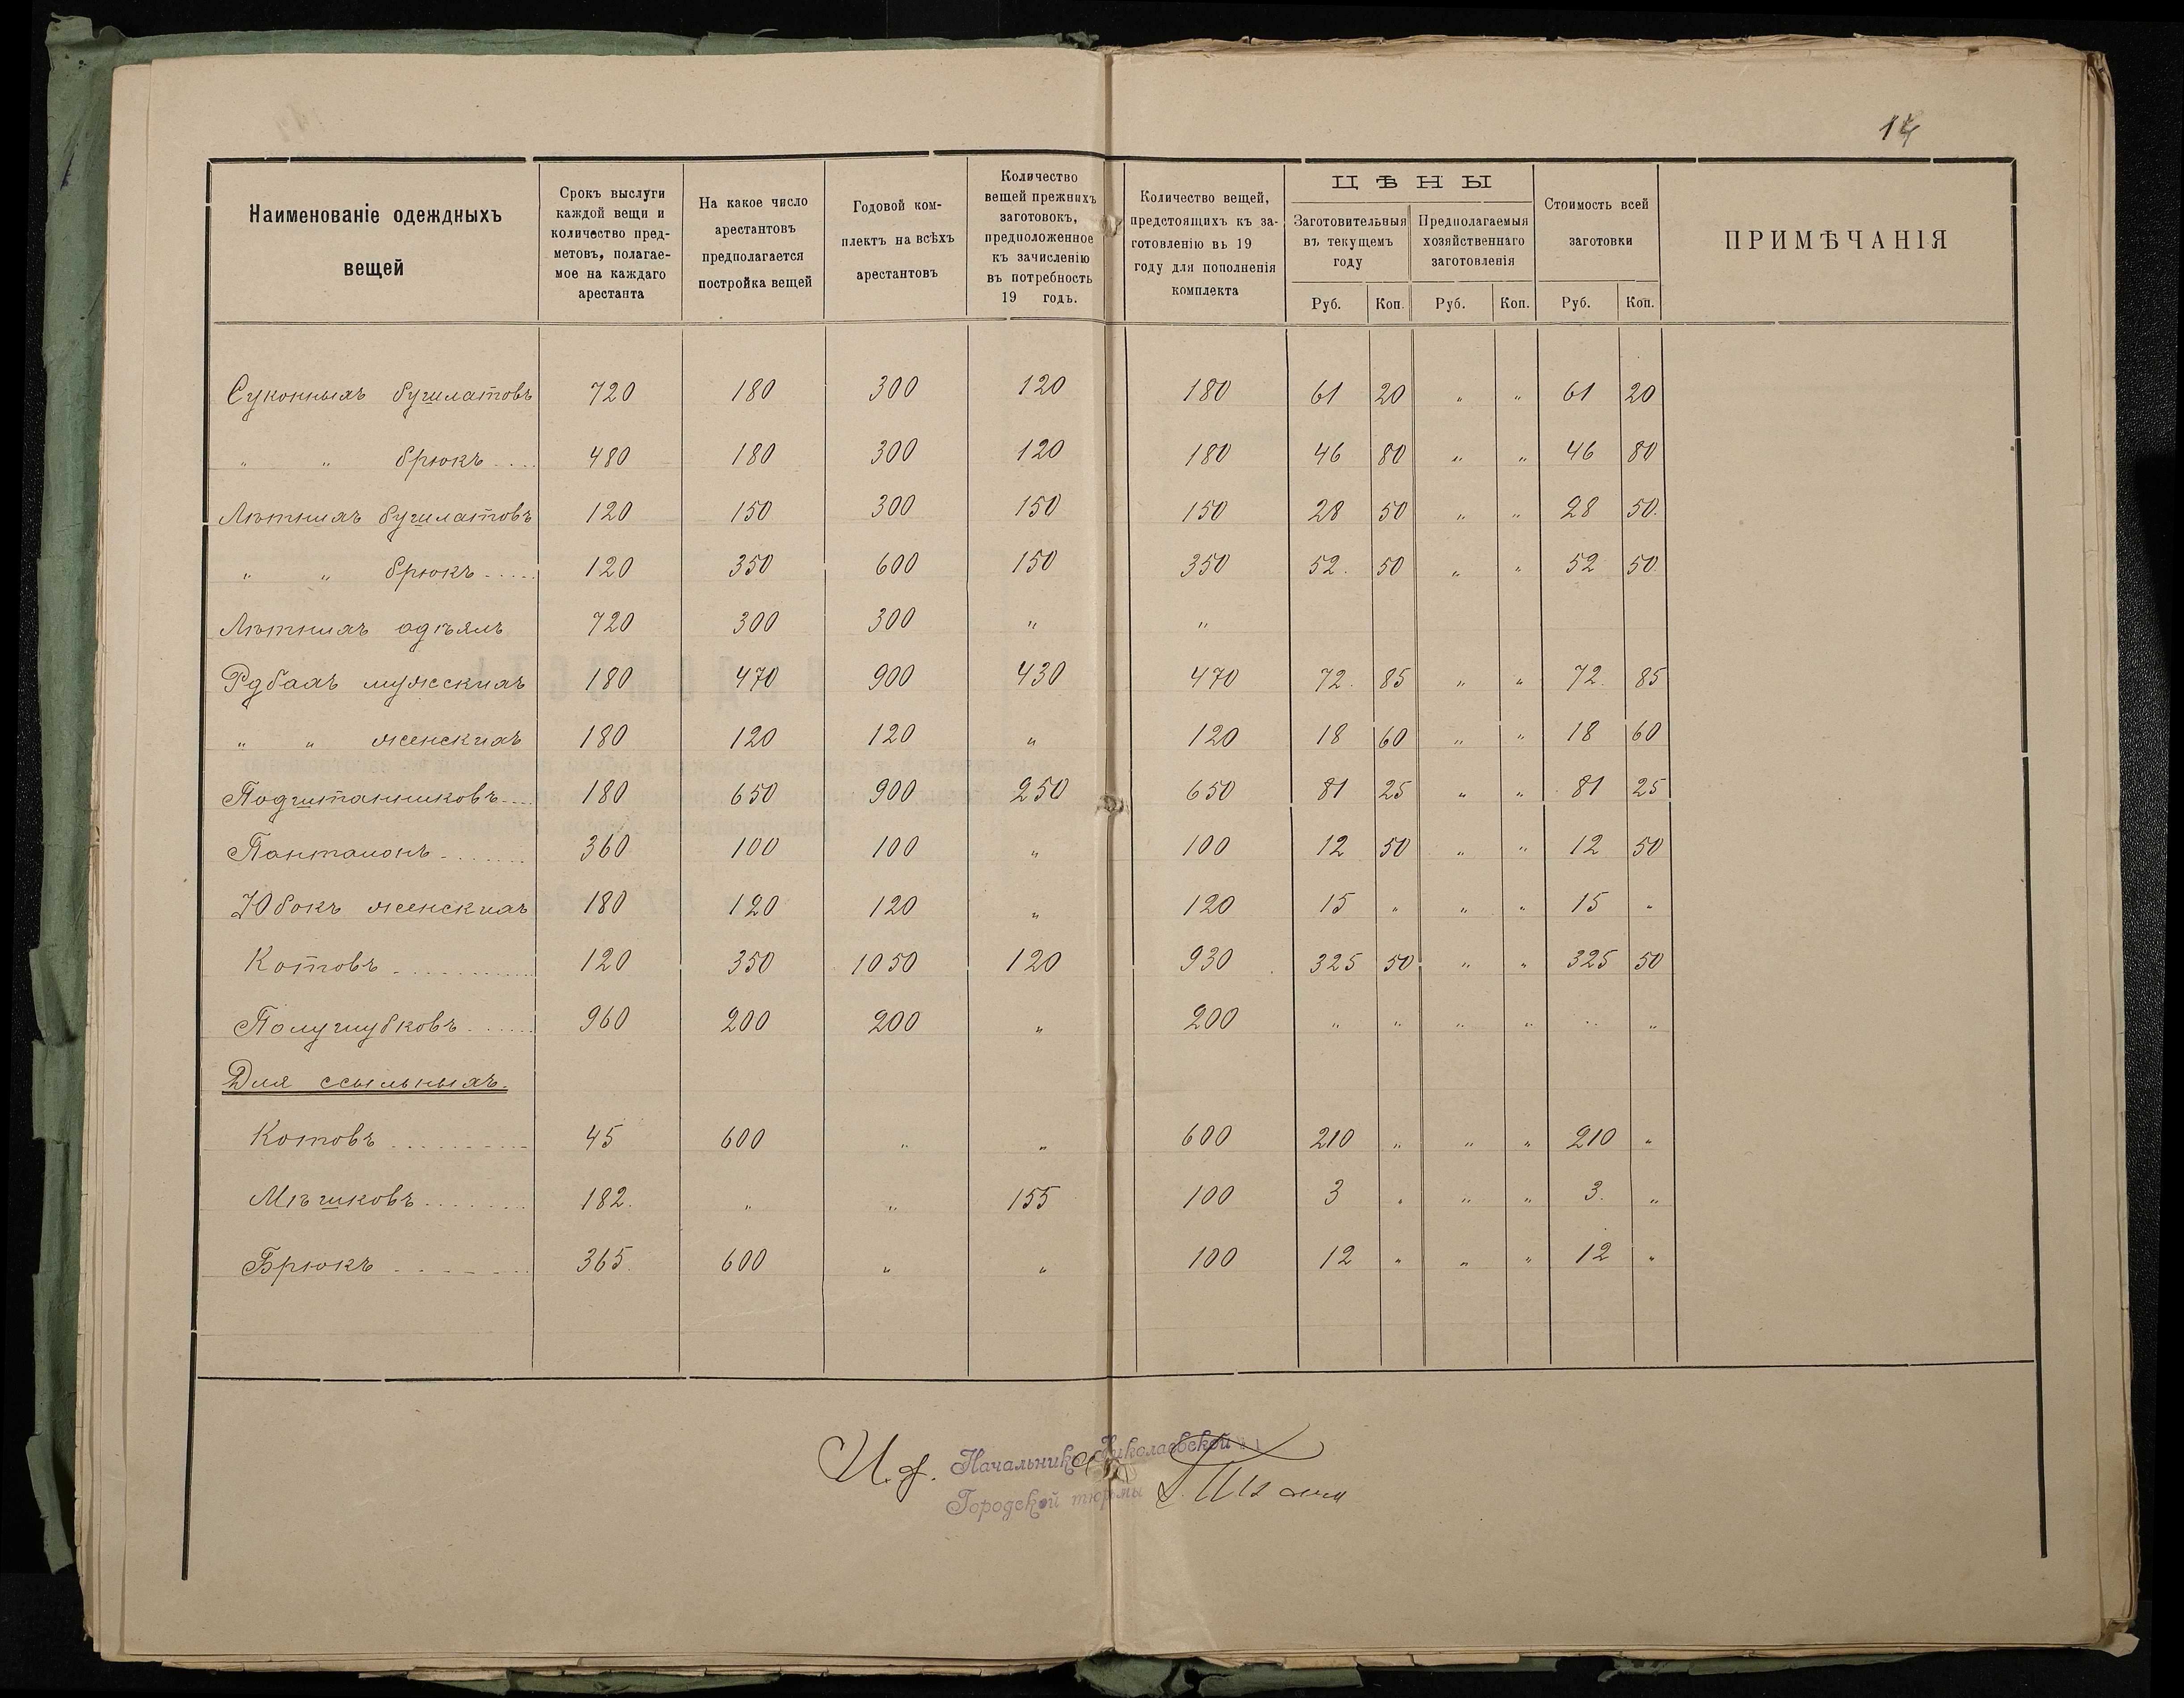 14
Наименованіе одеждныхъ вещей | Срокъ выслуги каждой вещи и количество предметовъ, полагаемое на каждаго арестанта | На какое число арестантовъ предполагается постройка вещей | Годовой комплектъ на всѣхъ арестантовъ | Количество вещей прежнихъ заготовокъ, предположенное къ зачисленію въ потребность 19 годъ. | Количество вещей, предстоящихъ къ заготовленію въ 19 году для пополненія комплекта | ЦѢНЫ | Заготовительныя въ текущемъ году Руб. Коп. | Предполагаемыя хозяйственнаго заготовленія Руб. Коп. | Стоимость всей заготовки Руб. Коп. | ПРИМѢЧАНІЯ
Суконныхъ бушлатовъ 720 180 300 120 180 61 20 " " 61 20
" " брюкъ .... 480 180 300 120 180 46 80 " " 46 80
Лѣтнихъ бушлатовъ 120 150 300 150 150 28 50 " " 28 50.
" " брюкъ ..... 120 350 600 150 350 52. 50 " " 52 50.
Лѣтнихъ одѣялъ 720 300 300 " "
Рубахъ мужскихъ 180 470 900 430 470 72. 85 " " 72. 85
" " женскихъ 180 120 120 " 120 18 60 " " 18 60
Подштанниковъ .... 180 650 900 250 650 81 25 " " 81 25
Панталонъ ....... 360 100 100 " 100 12 50 " " 12 50
Юбокъ женскихъ 180 120 120 " 120 15 " " " 15 "
Котовъ ........... 120 350 1050 120 930 325 50 " " 325 50
Полушубковъ ...... 960 200 200 " 200 " " " " " "
Для ссыльныхъ.
Котовъ ......... 45 600 " " 600 210 " " " 210 "
Мѣшковъ ....... 182. " " 155 100 3 " " " 3. "
Брюкъ ....... 365. 600 " " 100 12 " " " 12 "
И. д. Начальникъ Николаевской
Городской тюрьмы